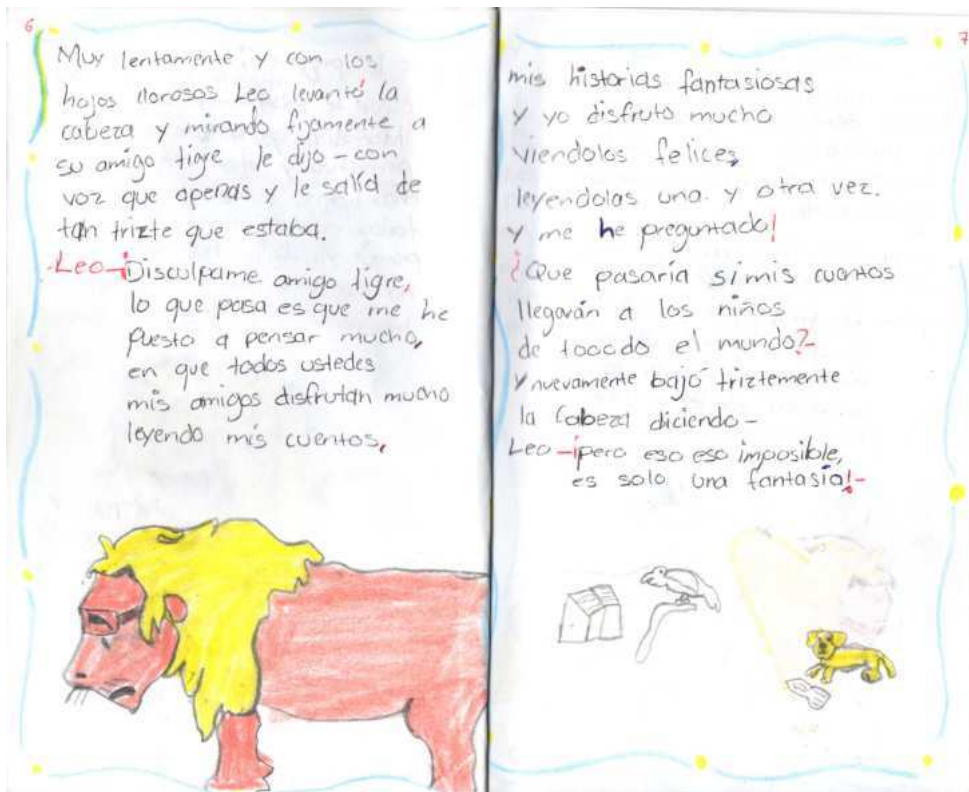 6
Muy lentamente y con los
hojos llorosos Leo levantó la
cabeza y mirando fijamente a
su amigo tigre le dijo - con
voz que apenas y le salía de
tan trizte que estaba.
-Leo-¡Disculpame amigo tigre,
lo que pasa es que me he
puesto a pensar mucho,
en que todos ustedes
mis amigos disfrutan mucho
leyendo mis cuentos,
7
mis historias fantasiosas
y yo disfruto mucho
viendolos felices,
leyendolas una y otra vez.
y me he preguntado!
¿Que pasaría si mis cuentos
llegarán a los niños
de toocdo el mundo?-
y nuevamente bajó triztemente
la Cabeza diciendo-
Leo-¡pero eso eso imposible,
es solo una fantasía!-